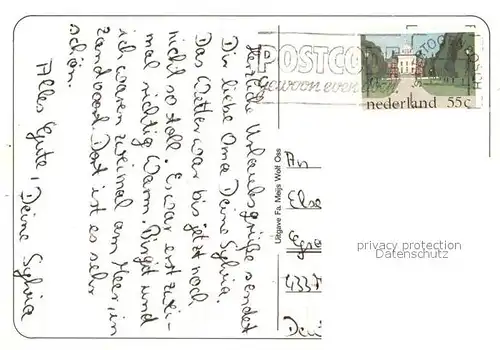 Herzliche Urlaubsgrüße sendet
Dir liebe Oma Deine Sylvia.
Das Wetter war bis jetzt noch
nicht so toll. Es war erst zwei-
mal richtig Warm. Birgit und
ich waren zweimal am Meer, in
Zandvoort. Dort ist es sehr
schön.
Alles Gute, Deine Sylvia
POSTCO
gewoon even
nederland 55c
Uitgave Fa. Meijs Wolf Oss
An
Else
4337
privacy protection
Datenschutz